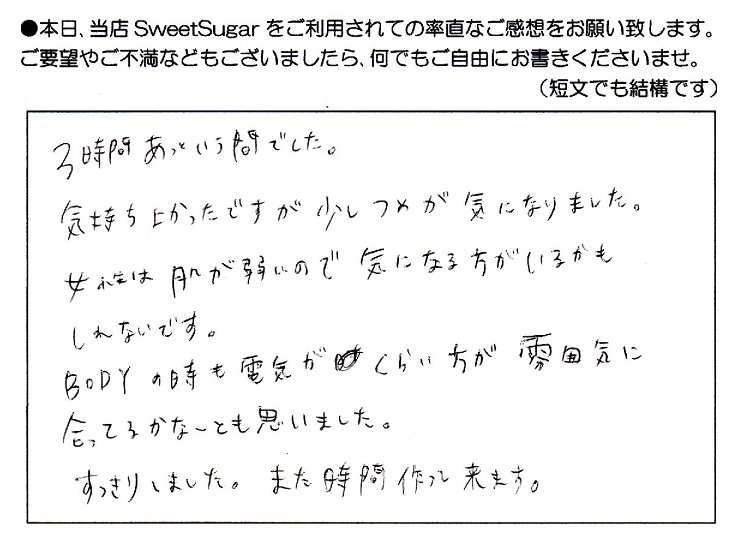 ●本日、当店SweetSugarをご利用されての率直なご感想をお願い致します。
ご要望やご不満などもございましたら、何でもご自由にお書きくださいませ。
(短文でも結構です)
3時間あっという間でした。
気持ち上かったですが少しつめが気になりました。
女性は肌が弱いので気になる方がいるかも
しれないです。
BODYの時も電気がくらい方が雰囲気に
合ってるかなーとも思いました。
すっきりしました。また時間作って来ます。